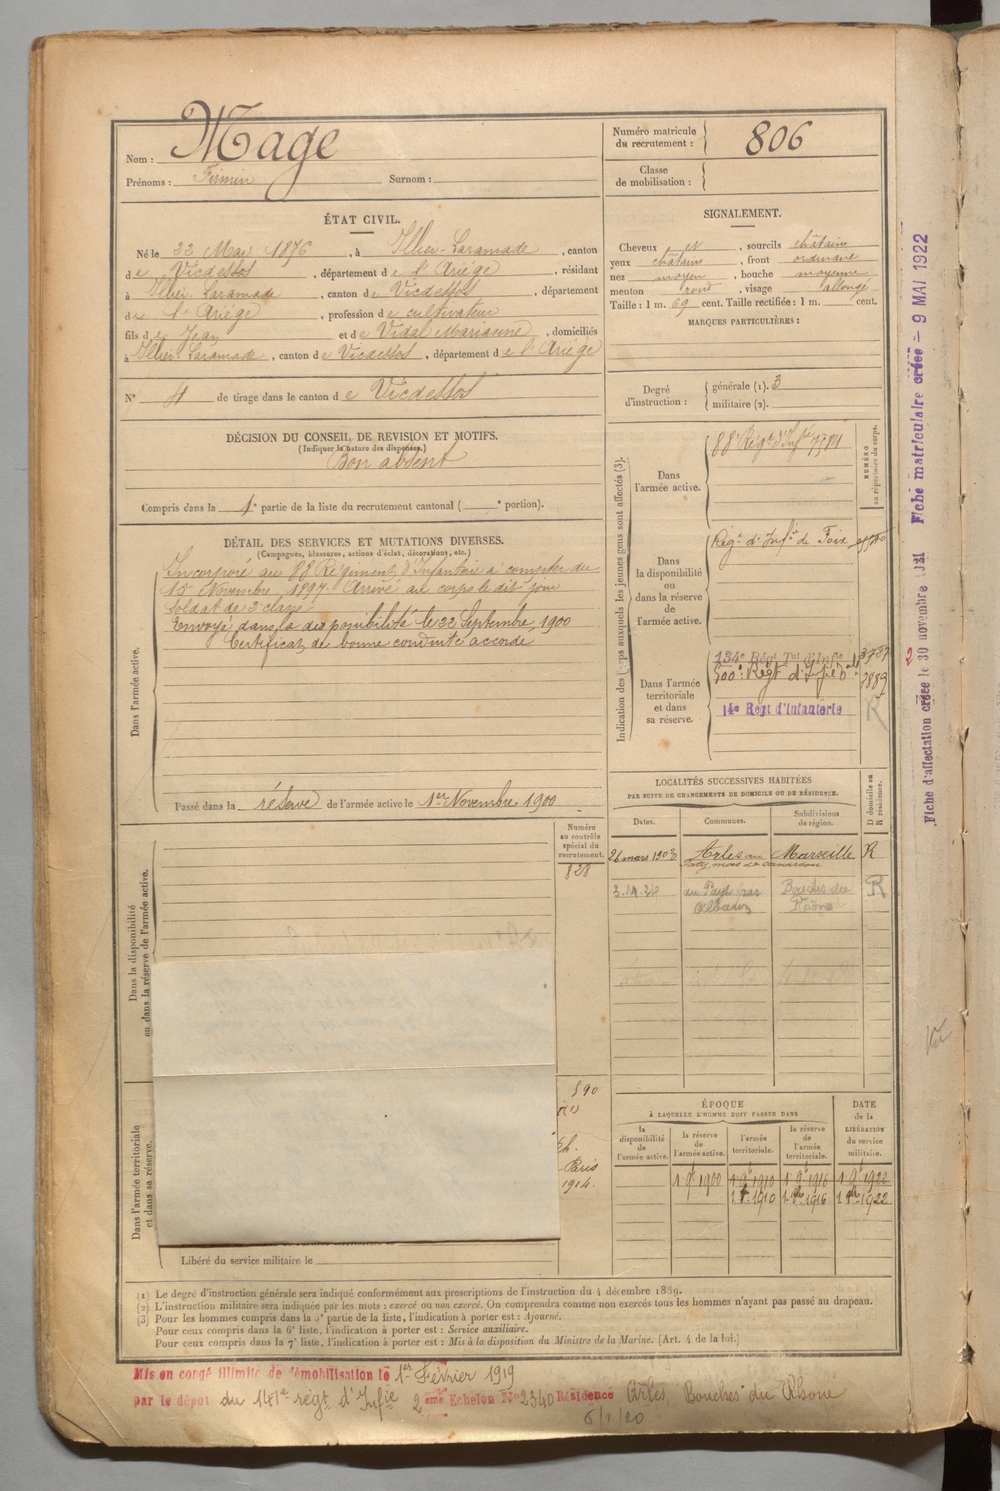 Nom : Mage
Prénoms : Firmin Surnom :
Numéro matricule du recrutement : 806
Classe de mobilisation :
ÉTAT CIVIL.
Né le 22 Mai 1876, à Illier-Laramade, canton
de Vicdessos, département de l'Ariège, résidant
à Illier-Laramade, canton de Vicdessos, département
de l'Ariège, profession de cultivateur
fils de Jean et de Vidal Marianne, domiciliés
à Illier-Laramade, canton de Vicdessos, département de l'Ariège
N° 4 de tirage dans le canton de Vicdessos
SIGNALEMENT.
Cheveux et, sourcils châtains
yeux châtains, front ordinaire
nez moyen, bouche moyenne
menton rond, visage allongé
Taille : 1 m. 69 cent. Taille rectifiée : 1 m. cent.
MARQUES PARTICULIÈRES :
Degré d'instruction : générale (1). 3
militaire (2).
DÉCISION DU CONSEIL DE REVISION ET MOTIFS.
(Indiquer la nature des dispenses.)
Bon absent
Compris dans la 1e partie de la liste du recrutement cantonal ( e portion).
DÉTAIL DES SERVICES ET MUTATIONS DIVERSES.
(Campagnes, blessures, actions d'éclat, décorations, etc.)
Dans l'armée active.
Incorporé au 88 Régiment d'Infanterie à compter du
15 Novembre 1897. Arrivé au corps le dit jour
Soldat de 2e classe.
Envoyé dans la disponibilité le 22 Septembre 1900
Certificat de bonne conduite accordé
Passé dans la réserve de l'armée active le 1er Novembre 1900
Indication des corps auxquels les jeunes gens sont affectés (3).
NUMÉRO au répertoire du corps.
Dans l'armée active. 88e Régt d'Infie 7784
Dans la disponibilité ou dans la réserve de l'armée active. Régt d'Infie de Foix
Dans l'armée territoriale et dans sa réserve. 134e Régt Tal d'Infie
500e Régt d'Infie
7889
14e Régt d'Infanterie R
LOCALITÉS SUCCESSIVES HABITÉES
PAR SUITE DE CHANGEMENTS DE DOMICILE OU DE RÉSIDENCE.
Dates. Communes. Subdivisions de région. D domicile ou R résidence.
26 mars 1903 Arles Marseille R
Bouches du Rhône R
Numéro au contrôle spécial du recrutement.
828
Dans la disponibilité ou dans la réserve de l'armée active.
Dans l'armée territoriale et dans sa réserve.
590
Paris
1914.
Libéré du service militaire le
ÉPOQUE
À LAQUELLE L'HOMME DOIT PASSER DANS
la disponibilité de l'armée active. la réserve de l'armée active. l'armée territoriale. la réserve de l'armée territoriale.
DATE de la LIBÉRATION du service militaire.
1 9e 1900 1 9e 1910 1 9e 1916 1 9e 1922
1 8e 1910 1 8bre 1916 1 8bre 1922
(1) Le degré d'instruction générale sera indiqué conformément aux prescriptions de l'instruction du 4 décembre 1889.
(2) L'instruction militaire sera indiquée par les mots : exercé ou non exercé. On comprendra comme non exercés tous les hommes n'ayant pas passé au drapeau.
(3) Pour les hommes compris dans la 5e partie de la liste, l'indication à porter est : Ajourné.
Pour ceux compris dans la 6e liste, l'indication à porter est : Service auxiliaire.
Pour ceux compris dans la 7e liste, l'indication à porter est : Mis à la disposition du Ministre de la Marine. (Art. 4 de la loi.)
Mis en congé illimité de démobilisation le 1er Février 1919
par le dépôt du 141e régt d'Infie 2ème Echelon N° 2340 Résidence Arles Bouches du Rhône
6/1/20
Fiche d'affectation créée le 30 novembre 1921 Fiche matriculaire créée - 9 MAI 1922
2